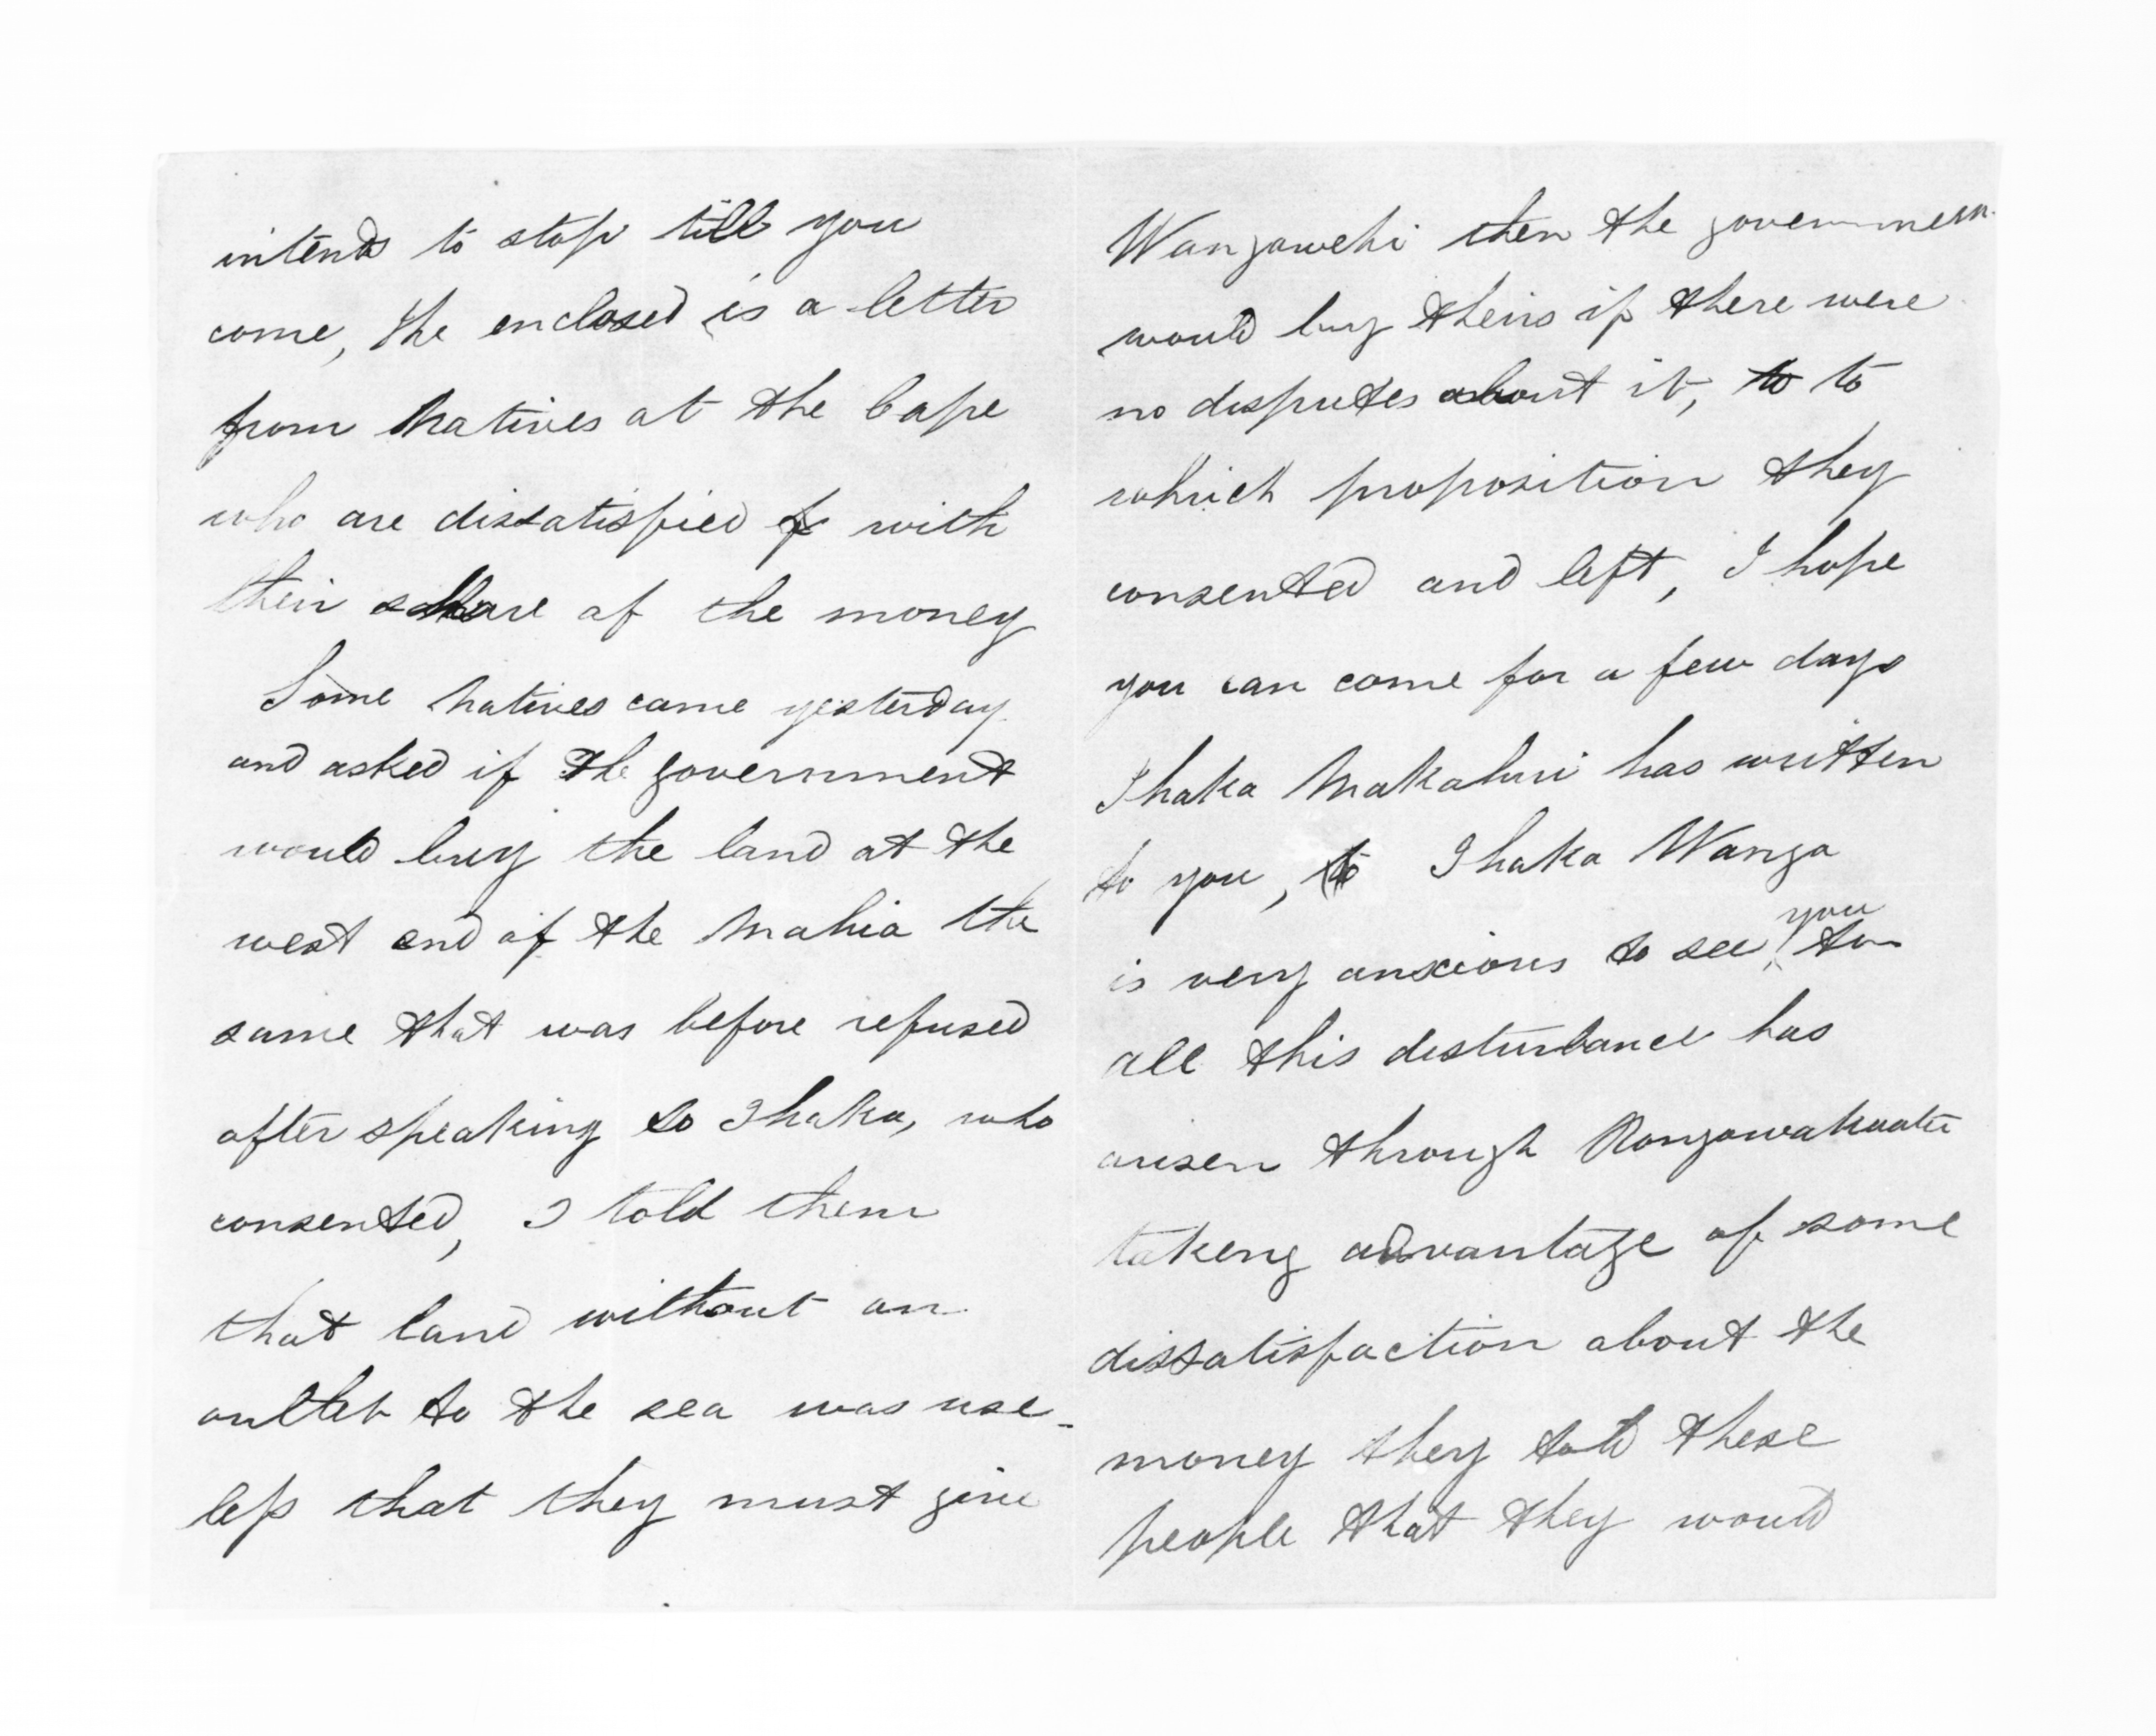 intends to stop till you
come, the enclosed is a letter
from Natives at the Cape
who are dissatisfied with
their share of the money
Some natives came yesterday
and asked if the government
would buy the land at the
west end of the Mahia the
same that was before refused
after speaking to Ihaka, who
consented, I told them
that land without an
outlet to the sea was use-
less that they must give
Wangawehi then the government
would buy theirs if there were
no disputes about it, to to
which proposition they
consented and left, I hope
you can come for a few days
Ihaka Makahuri has written
to you, to Ihaka Wanga
is very anxious to see you too
all this disturbance has
arisen through Rongowakaata
takeng advantage of some
dissatisfaction about the
money they told these
people that they would